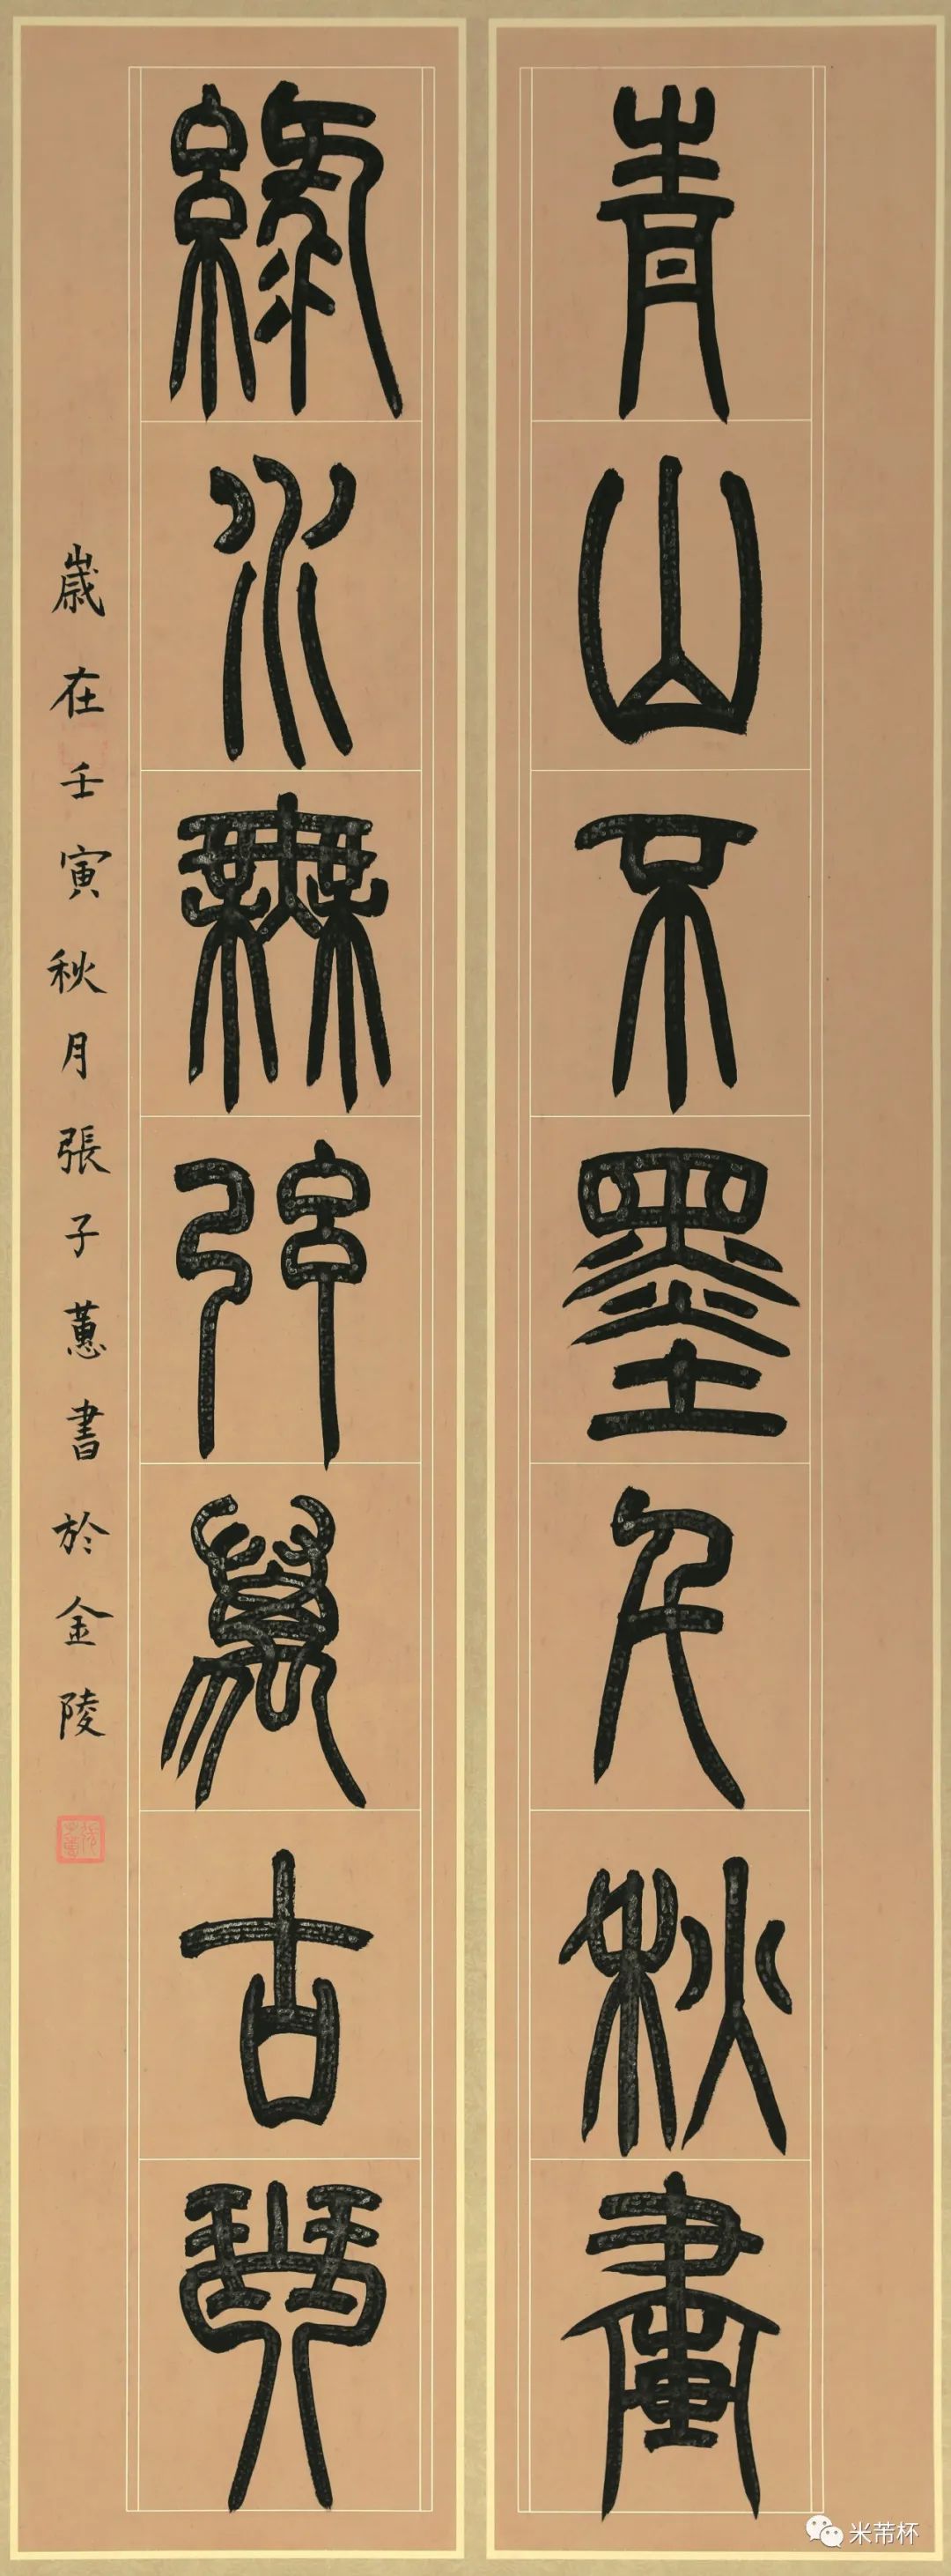 青山不墨千秋畫
綠水無弦萬古琴
歲在壬寅秋月張子蕙書於金陵
米芾杯